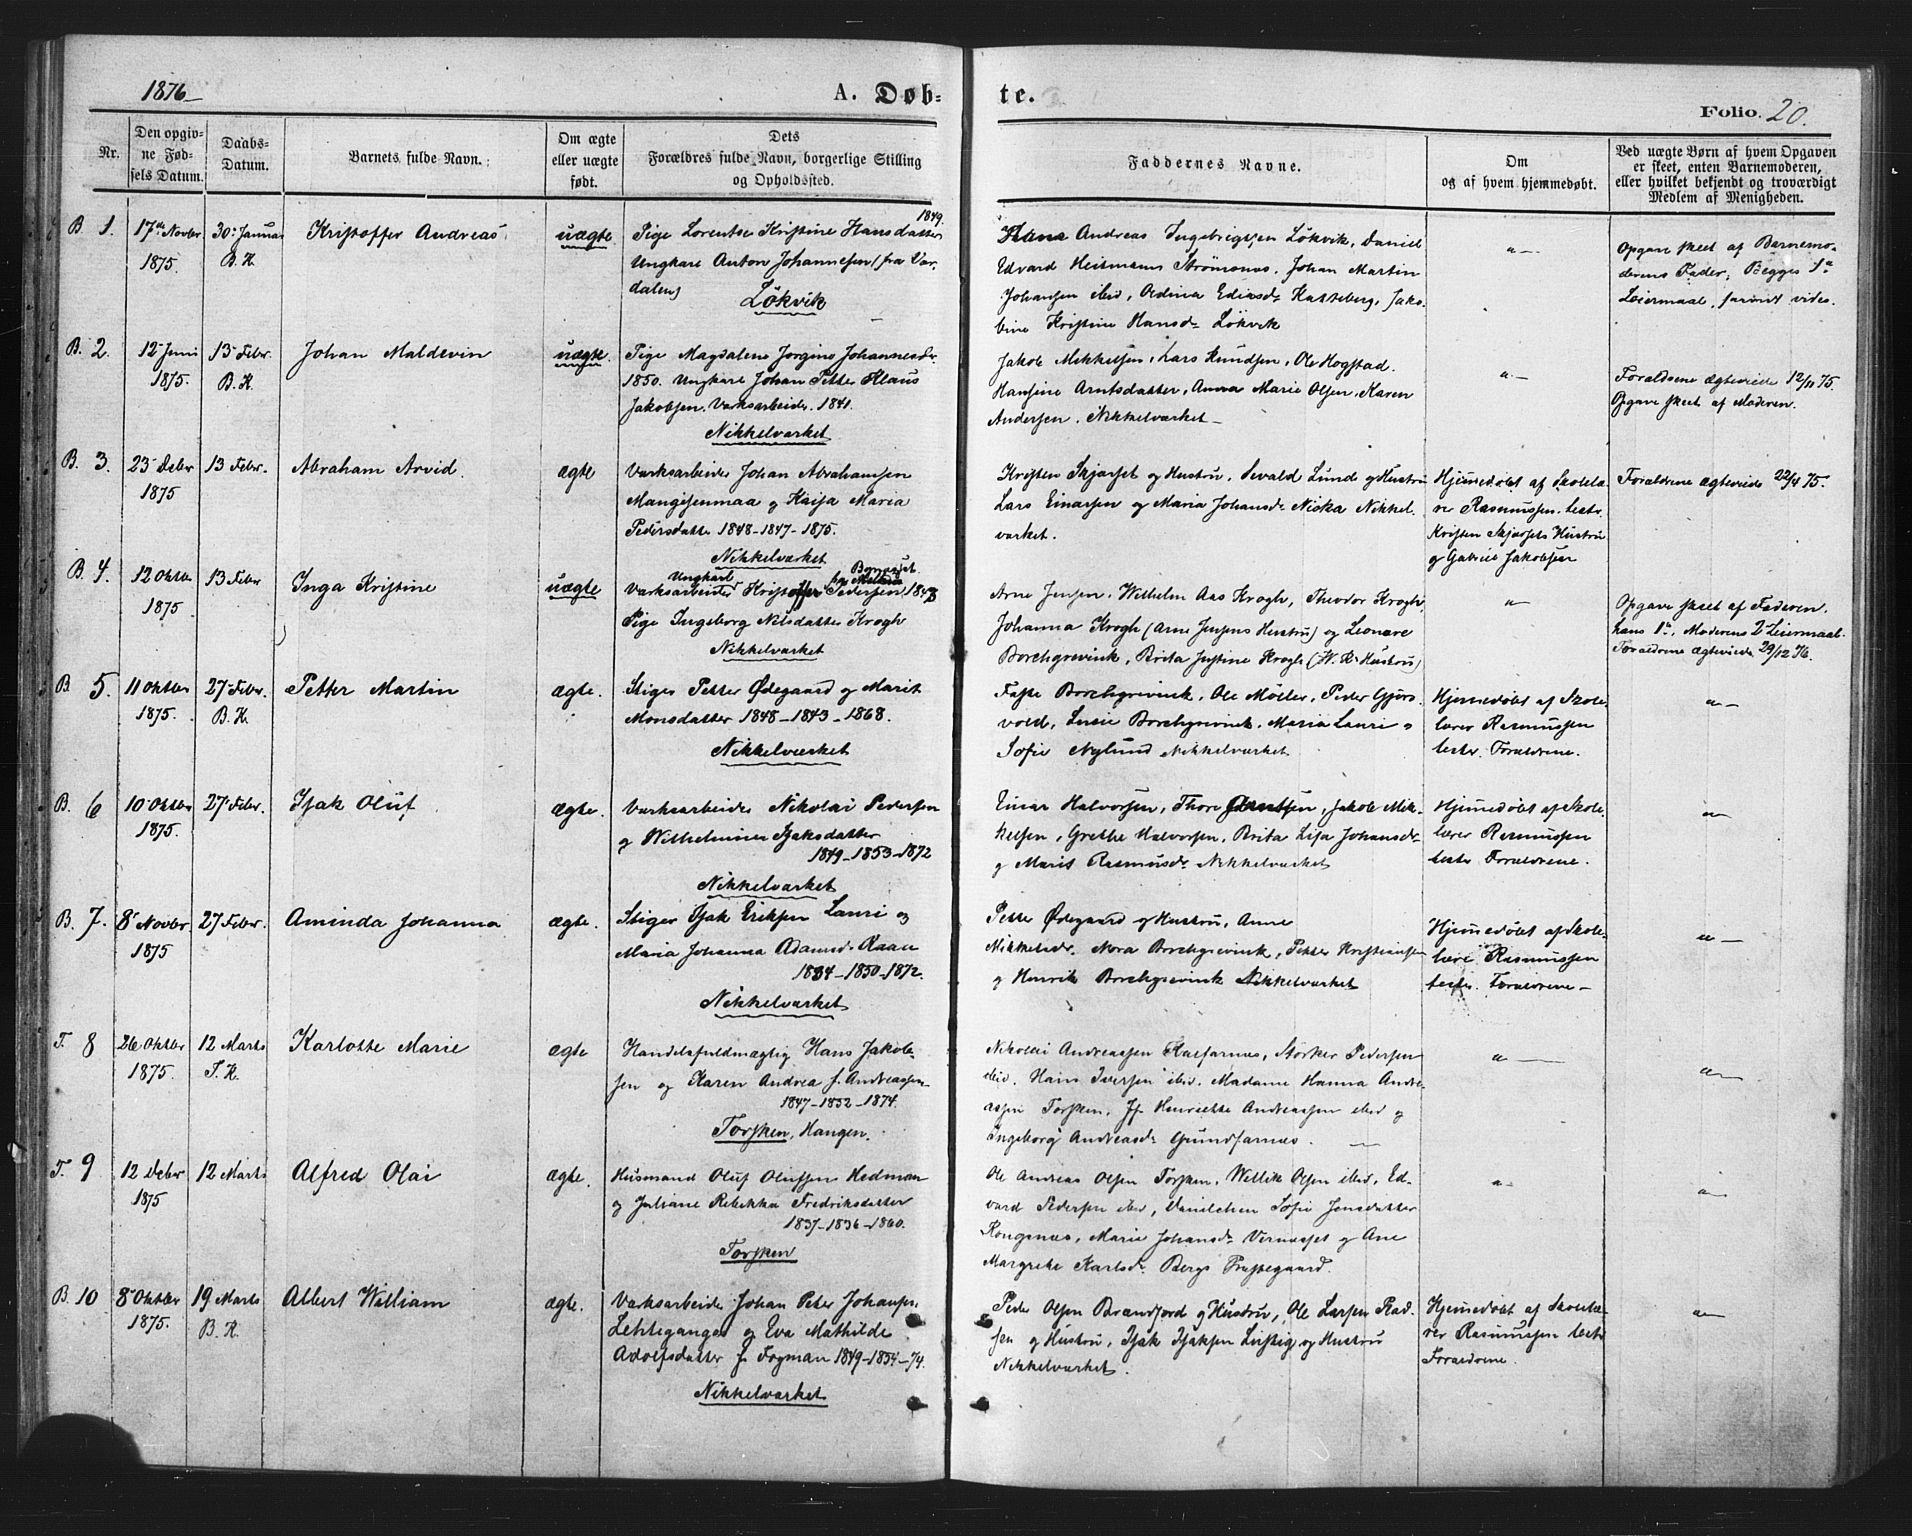 1876
A. Døb-
te.
Folio. 20.
Nr.
Den opgiv-
ne Fød-
sels Datum.
Daabs-
Datum.
Barnets fulde Navn.
Om ægte
eller uægte
født.
Dets
Forældres fulde Navn, borgerlige Stilling
og Opholdssted.
Faddernes Navne.
Om
og af hvem hjemmedøbt.
Ved uægte Børn af hvem Opgaven
er skeet, enten Barnemoderen,
eller hvilket bekjendt og troværdigt
Medlem af Menigheden.
B. 1. 17de Novbr 1875. 30 Januar B. K.
Kristoffer Andreas
uægte
1849
Pige Lorentse Kristine Hansdatter
Ungkarl Anton Johannesen (fra Vær-
dalen)
Løkvik
Hans Andreas Ingebrigtsen Løkvik, Daniel
Edvard Heitmann Strømsnes, Johan Martin
Johansen ibid, Oldina Ediasdr Kasteberg, Jako-
bine Kristine Hansdr Løkvik
"
Opgave skeet af Barnemo-
derens Fader, Begges 1ste
Leiermaal, saavidt vides.
B. 2. 12 Juni 1875. 13 Febr. B. K.
Johan Maldevin
uægte
Pige Magdalena Jørgine Johannesdr
1850. Ungkarl Johan Petter Klaus
Jakobsen, Værksarbeider. 1841.
Nikkelværket
Jakob Mikkelsen, Lars Knudsen, Ole Hogstad.
Hansine Arntsdatter, Anna Marie Olsen, Karen
Andersen. Nikkelværket
"
Forældrene ægteviede 12/11 75.
Opgave skeet af Moderen.
B. 3. 23 Debr 1875 13 Febr.
Abraham Arvid.
ægte
Værksarbeider Johan Abrahamsen
Mangisenmaa og Kaisa Maria
Pedersdatter 1848-1847-1875.
Nikkelværket
Kristen Skjærset og Hustru, Sevald Lund og Hustru
Lars Einarsen og Maria Johansdr Niska Nikkel-
værket.
Hjemmedøbt af Skolelæ-
rer Rasmussen. test.
Kristen Skjærsets Hustru
og Gabriel Jakobsen
Forældrene ægteviede 22/4 75.
B. 4. 12 Oktbr 1875. 13 Febr
Inga Kristine
uægte
Ungkarl
Værksarbeider Kristoffer Pedersen 1843
Pige Ingeborg Nilsdatter Krogh
Nikkelværket
Arne Jensen, Wilhelm Aas Krogh, Theodor Krogh,
Johanna Krogh (Arne Jensens Hustru) og Leonare
Borchgrevink, Brita Justine Krogh (W. K. Hustru)
"
Opgave skeet af Faderen.
hans 1ste, Moderens 2det Leiermaal.
Forældrene ægteviede 29/12 76.
B 5. 11 Oktbr 1875. 27 Febr. B. K.
Petter Martin
ægte.
Stiger Petter Ødegaard og Marit
Monsdatter 1848-1843-1868.
Nikkelværket
Faste Borchgrevink, Ole Møller, Peder Gjørs-
vold, Lucie Borchgrevink, Maria Lauri o
Sofie Nylund Nikkelværket.
Hjemmedøbt af Skole-
lærer Rasmussen
tester Forældrene.
"
B. 6 10 Oktbr 1875. 27 Febr.
Isak Oluf
ægte.
Værksarbeider Nikolai Pedersen
og Wilhelmina Isaksdatter
1849-1853-1872
Nikkelværket
Einar Halvorsen, Thore Arntsen, Jakob Mik-
kelsen, Grethe Halvorsen, Brita Lisa Johansdr
og Marit Rasmusdr Nikkelværket
Hjemmedøbt af Skole-
lærer Rasmussen
tester Forældrene.
"
B. 7. 8 Novbr 1875 27 Febr.
Aminda Johanna
ægte.
Stiger Isak Eriksen Lauri og
Maria Johanna Adamsdr Raan
1834-1850-1872.
Nikkelværket
Petter Ødegaard og Hustru, Anne
Mikkelsdr. Nora Borchgrevink, Petter Kristiansen
og Henrik Borchgrevink Nikkelværket
Hjemmedøbt af Skole-
lærer Rasmussen
tester. Forældrene -
"
T. 8 26 Oktbr 1875. 12 Marts T. K.
Karlotte Marie
ægte
Handelsfuldmægtig Hans Jakob-
sen og Karen Andrea f. Andreassen
1847-1852-1874.
Torsken, Hangen.
Nikolai Andreassen Kalfarnes, Størker Pedersen
ibid. Hans Iversen ibid. Madame Hanna Andre-
assen Torsken, Jf. Henriette Andreassen ibid og
Ingeborg Andreasdr Grundfarnes.
"
"
T. 9 12 Debr 1875 12 Marts
Alfred Olai
ægte.
Husmand Oluf Olufsen Hedman
og Juliane Rebekka Fredriksdatter
1837-1836-1860.
Torsken
Ole Andreas Olsen Torsken, Willik Olsen ibid, Ed-
vard Pedersen ibid, Danilehen Sofie Jensdatter
Kongsnes, Marie Johansdr Vernæsset og Ane
Margrete Karlsdr Bergs Præstegaard.
"
"
B. 10 8 Oktbr 1875. 19 Marts B. K.
Albert William
ægte.
Værksarbeider Johan Peter Johansen
Lehtegangas og Eva Mathilde
Adolfsdatter f. Fogman 1849-1854-74.
Nikkelværket
Peder Olsen Brandfjord og Hustru, Ole Larsen Rad-
sen og Hustru, Isak Isaksen Lustig og Hustru
Nikkelværket.
Hjemmedøbt af Skolelæ-
rer Rasmussen testr
Forældrene.
"